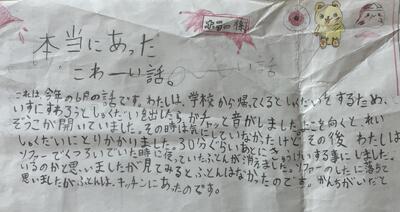 本当にあった
こわーい話。
これは今年の6月の話です。わたしは、学校から帰ってくるとしゅくだいをするため、
いすにすわろうとしゅくだいを出したら、ガチャって音がしました。上を向くと、れい
ぞうこが開いていました。その時は気にしていなかったけどその後 わたしは
しゅくだいにとりかかりました。30分ぐらいあとにきゅうけいする事にしました。
ソファーでくつろいでいた時に使っていたふとんが消えました。ソファーのしたに落ちて
いるのかと思いましたが見てみるとふとんはなかったのです。かんちがいだと
思いましたがふとんは、キッチンにあったのです。